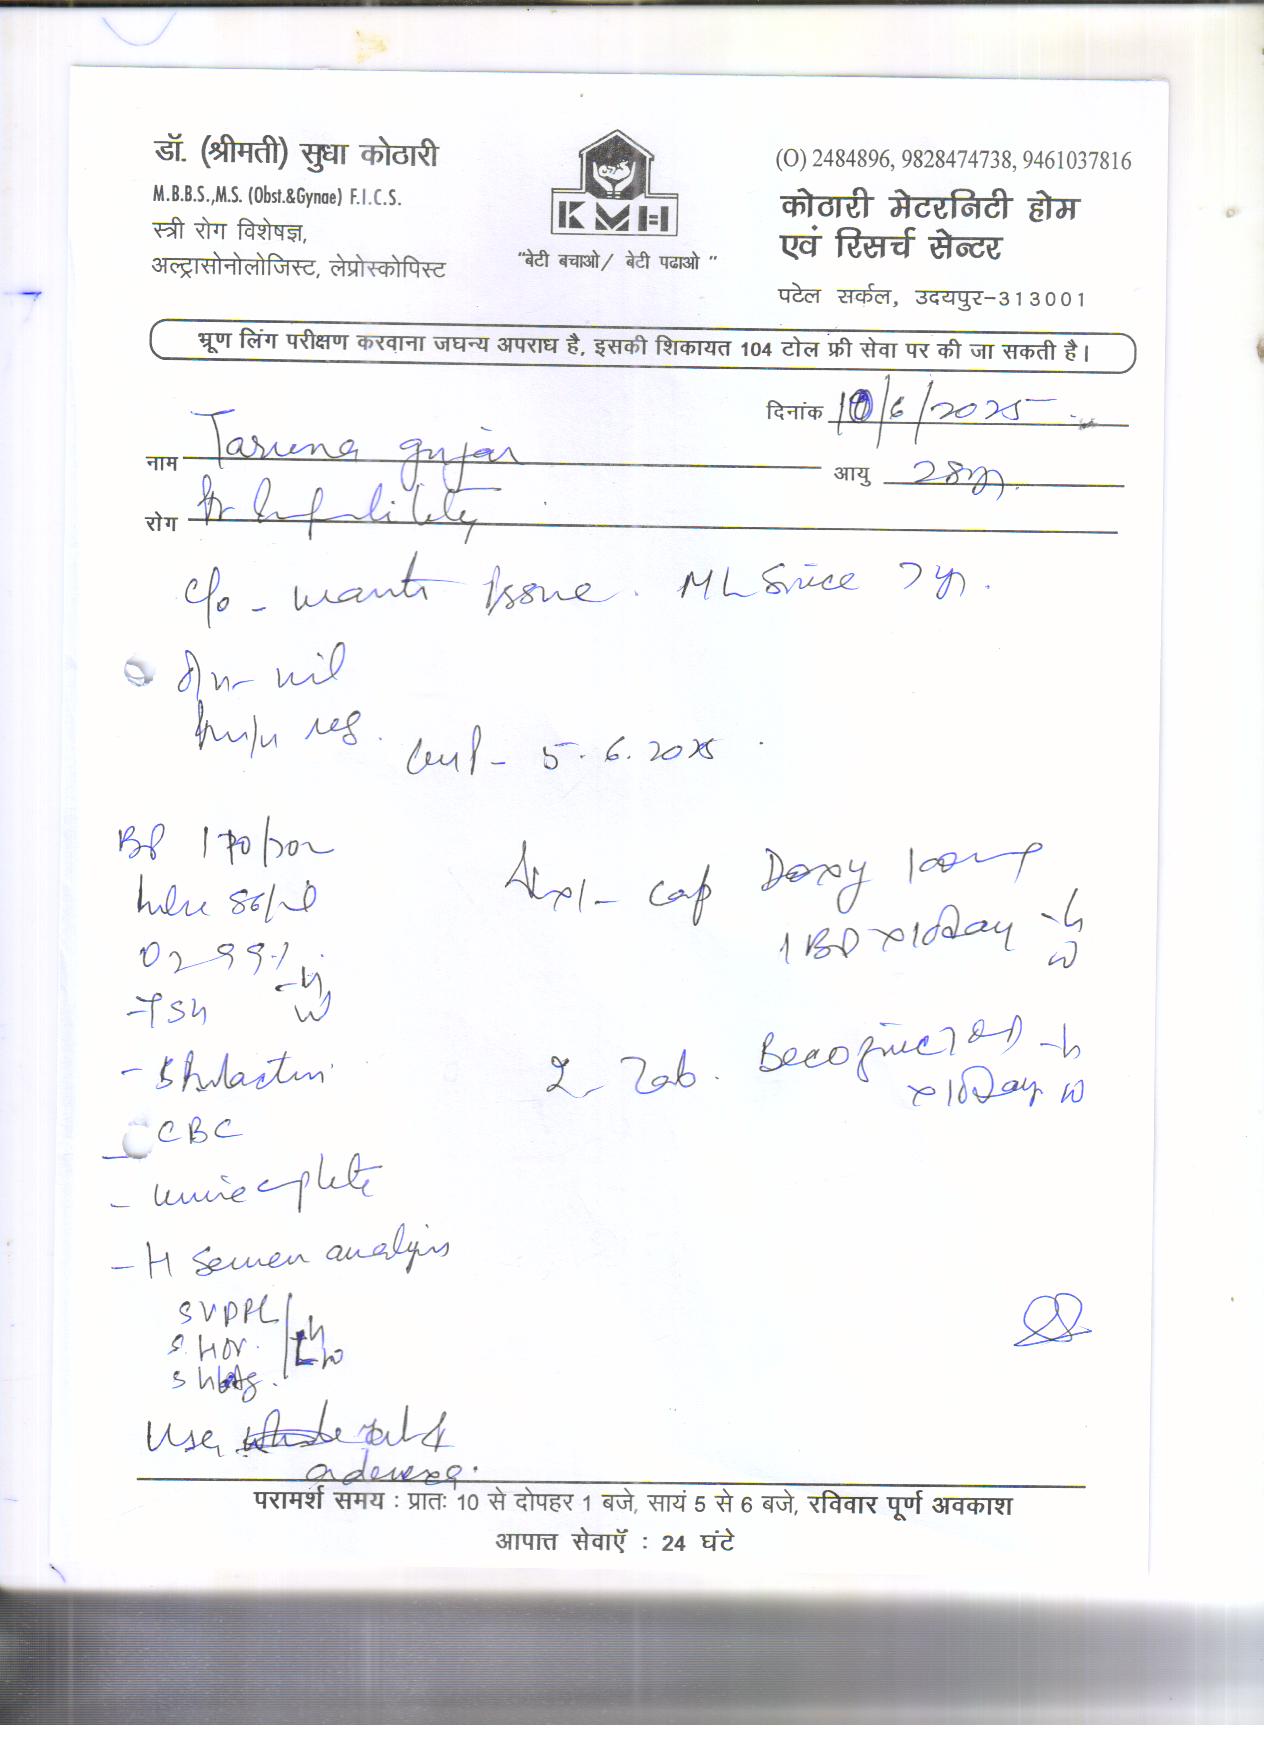 डॉ. (श्रीमती) सुधा कोठारी
M.B.B.S.,M.S. (Obst.&Gynae) F.I.C.S.
स्त्री रोग विशेषज्ञ,
अल्ट्रासोनोलोजिस्ट, लेप्रोस्कोपिस्ट
KMH
"बेटी बचाओ/ बेटी पढाओ "
(O) 2484896, 9828474738, 9461037816
कोठारी मेटरनिटी होम
एवं रिसर्च सेन्टर
पटेल सर्कल, उदयपुर-313001
भ्रूण लिंग परीक्षण करवाना जघन्य अपराध है, इसकी शिकायत 104 टोल फ्री सेवा पर की जा सकती है।
दिनांक 10/6/2025
नाम Taruna gujar
आयु 28yr.
रोग Infertility
c/o - wants issue. ML Since 7 yr.
nil
reg.
LMP - 5.6.2025
BP 170/
Pulse 86/
O2 99%
- TSH
- S Prolactin
- CBC
- Urine complete
- H Semen analysis
S VDRL
S HIV.
S HbsAg.
USG
adenexa.
Adv 1- cap Doxy 100mg
1 BD x 10 Day
2- Tab. Becozinc 1 OD
x 10 Day
परामर्श समय : प्रातः 10 से दोपहर 1 बजे, सायं 5 से 6 बजे, रविवार पूर्ण अवकाश
आपात्त सेवाएँ : 24 घंटे